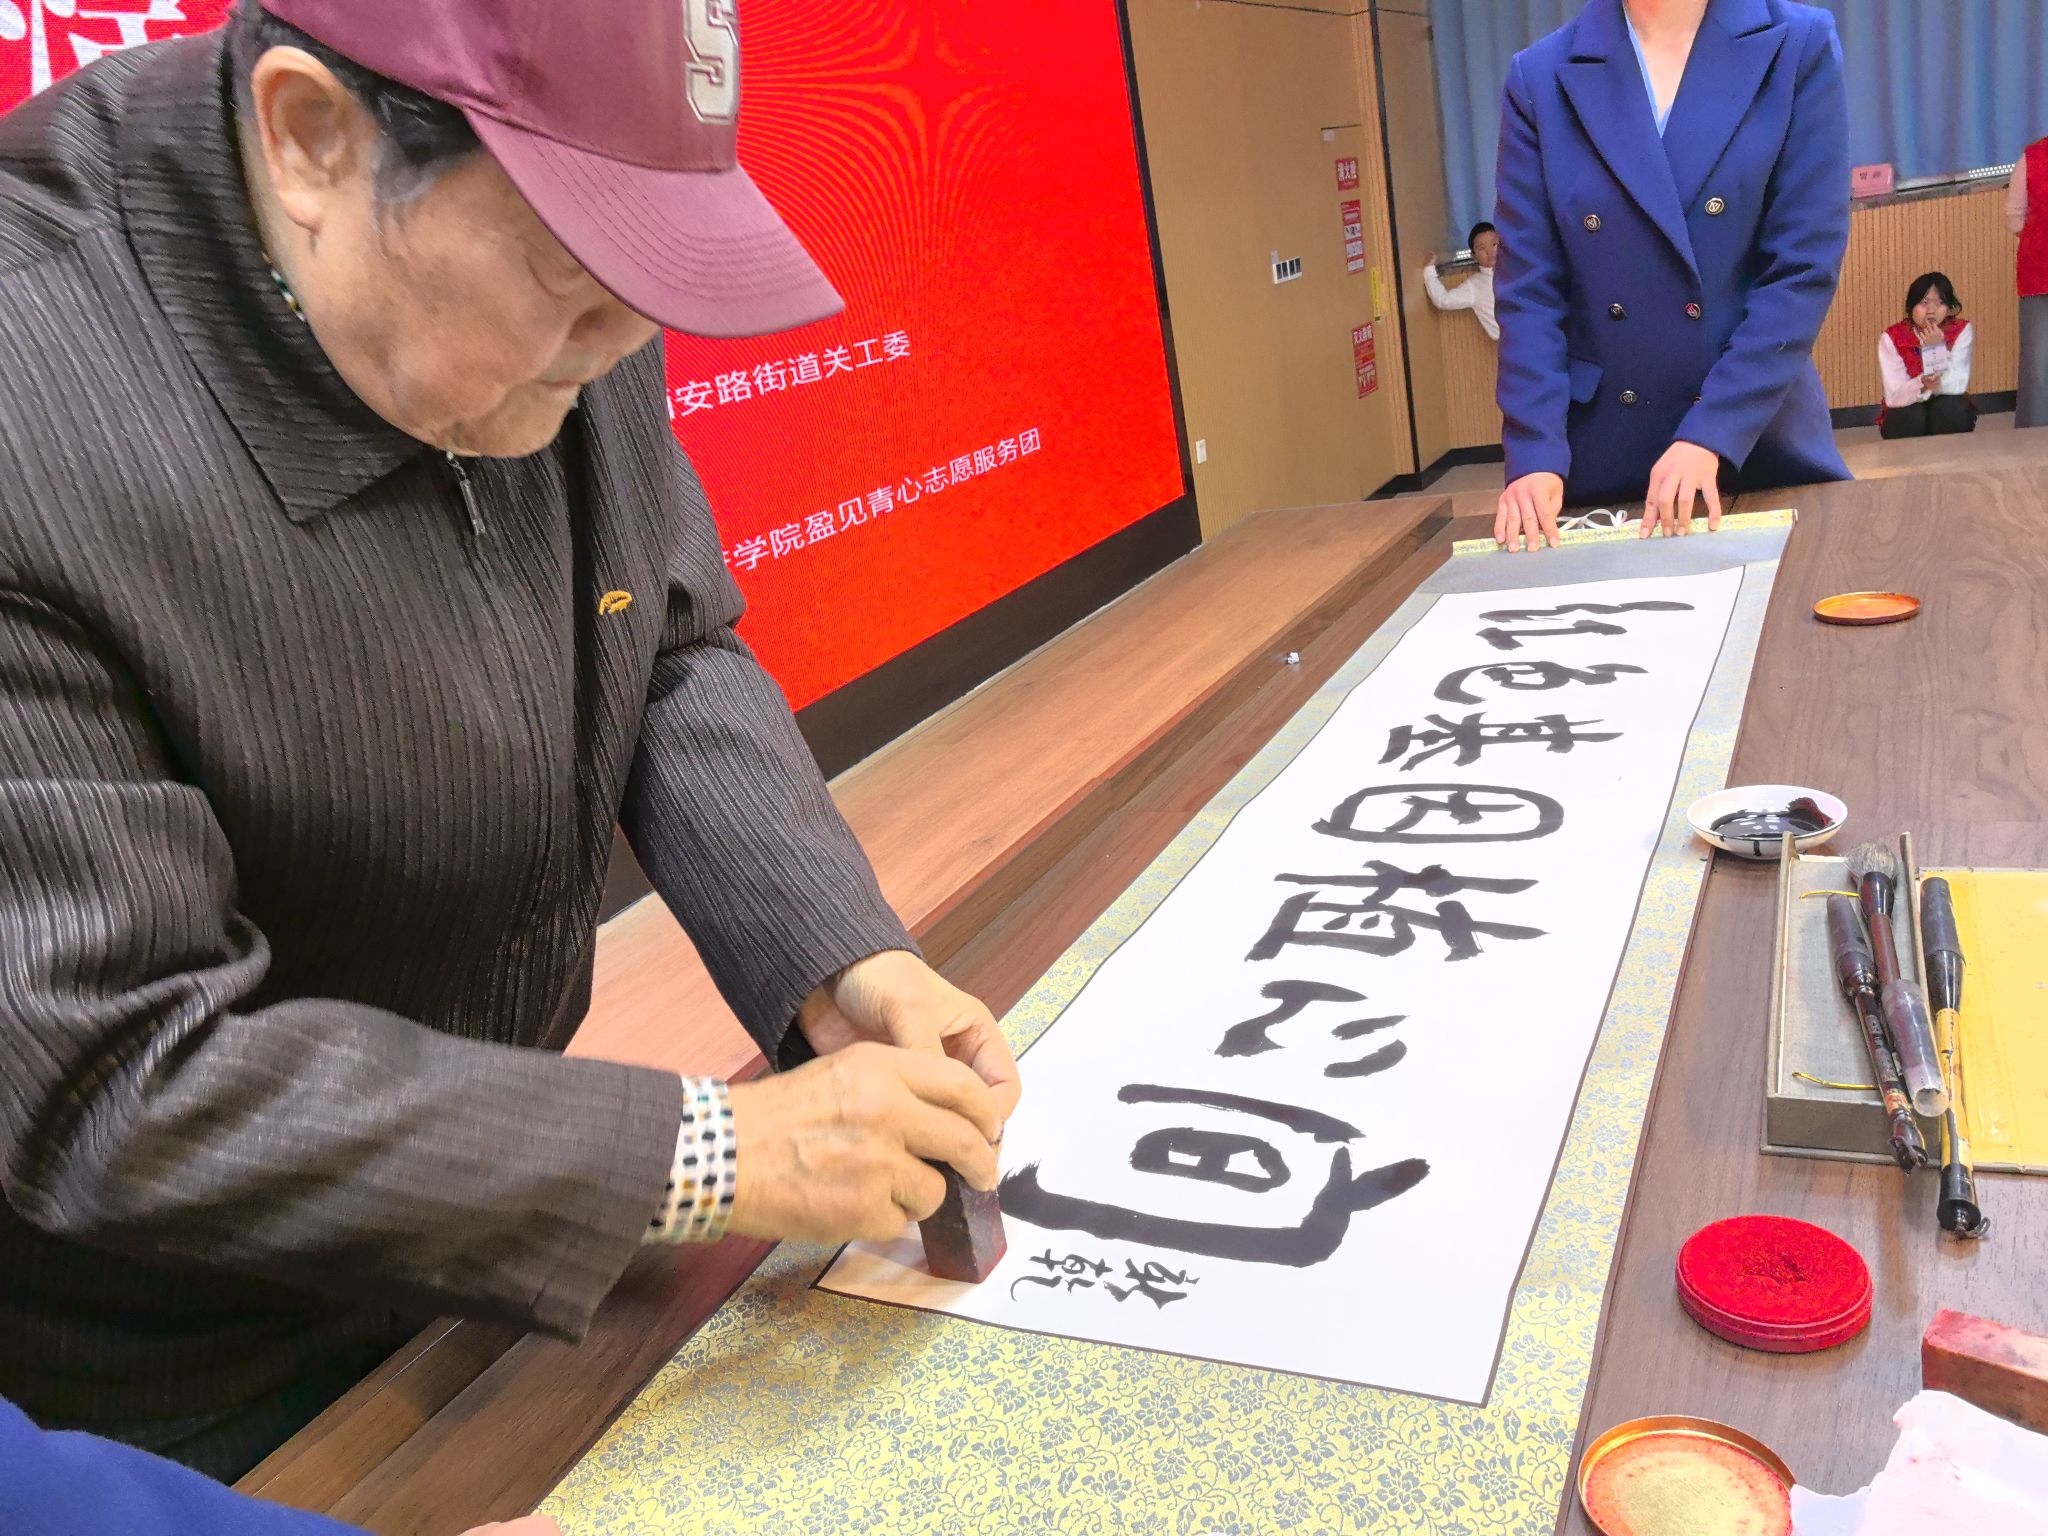 安路街道关工委
学院盈见青心志愿服务团
红色基因植心间
S